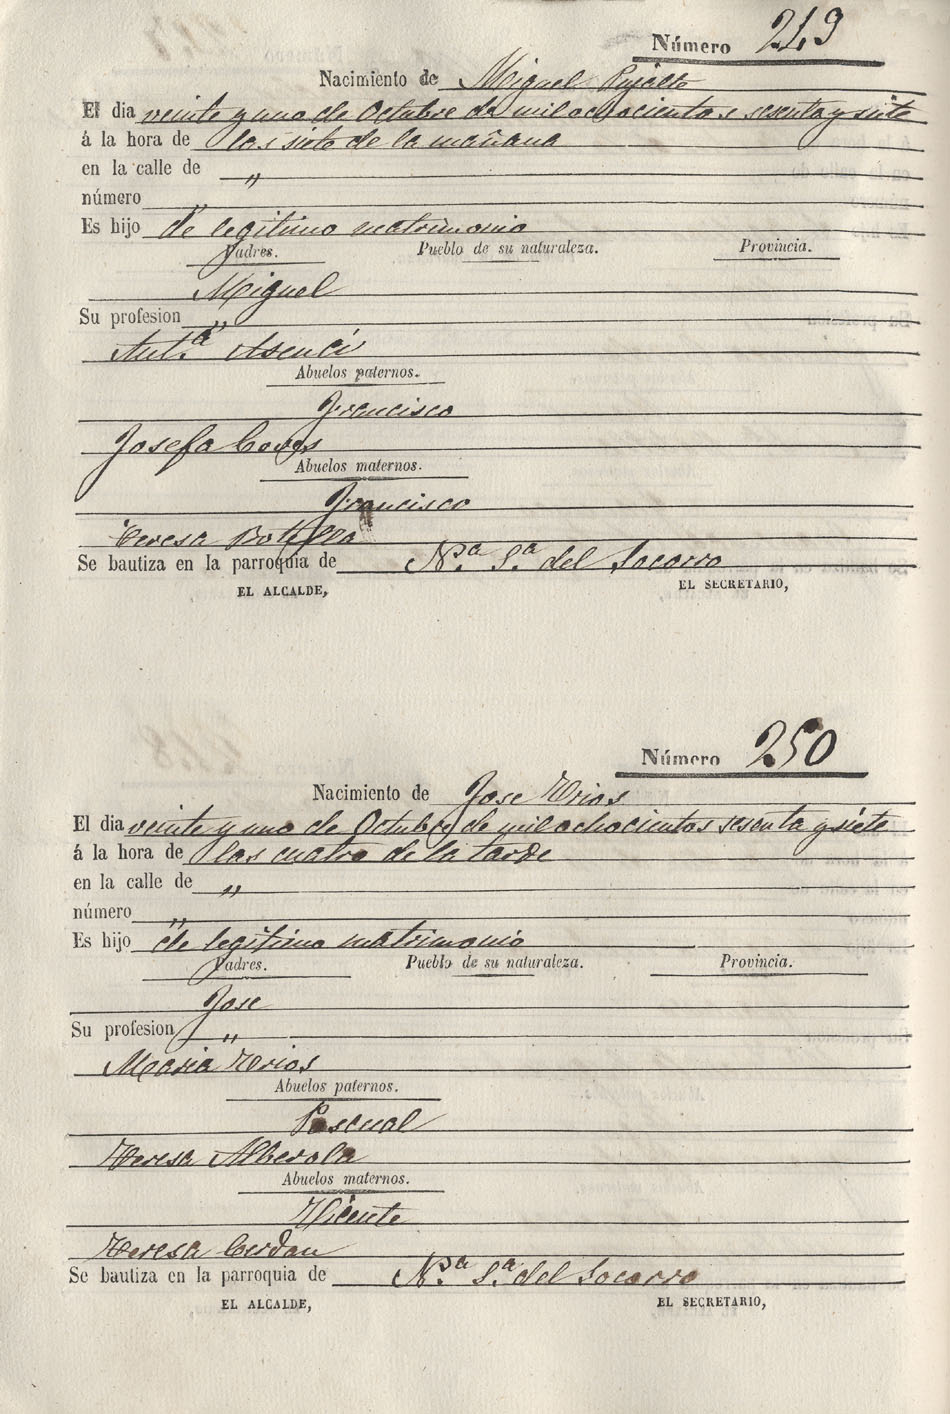 Número 249
Nacimiento de Miguel Pujalte
El dia veinte y uno de Octubre de mil ochocientos sesenta y siete
á la hora de las siete de la mañana
en la calle de "
número "
Es hijo de legitimo matrimonio
Padres. Pueblo de su naturaleza. Provincia.
Miguel
Su profesion "
Ant.ª Asenci
Abuelos paternos.
Francisco
Josefa Coves
Abuelos maternos.
Francisco
Teresa Botella
Se bautiza en la parroquia de N.ª S.ª del Socorro
EL ALCALDE, EL SECRETARIO,
Número 250
Nacimiento de Jose Trios
El dia veinte y uno de Octubre de mil ochocientos sesenta y siete
á la hora de las cuatro de la tarde
en la calle de "
número "
Es hijo de legitimo matrimonio
Padres. Pueblo de su naturaleza. Provincia.
Jose
Su profesion "
Maria Trios
Abuelos paternos.
Pascual
Teresa Alberola
Abuelos maternos.
Vicente
Teresa Cerdan
Se bautiza en la parroquia de N.ª S.ª del Socorro
EL ALCALDE, EL SECRETARIO,